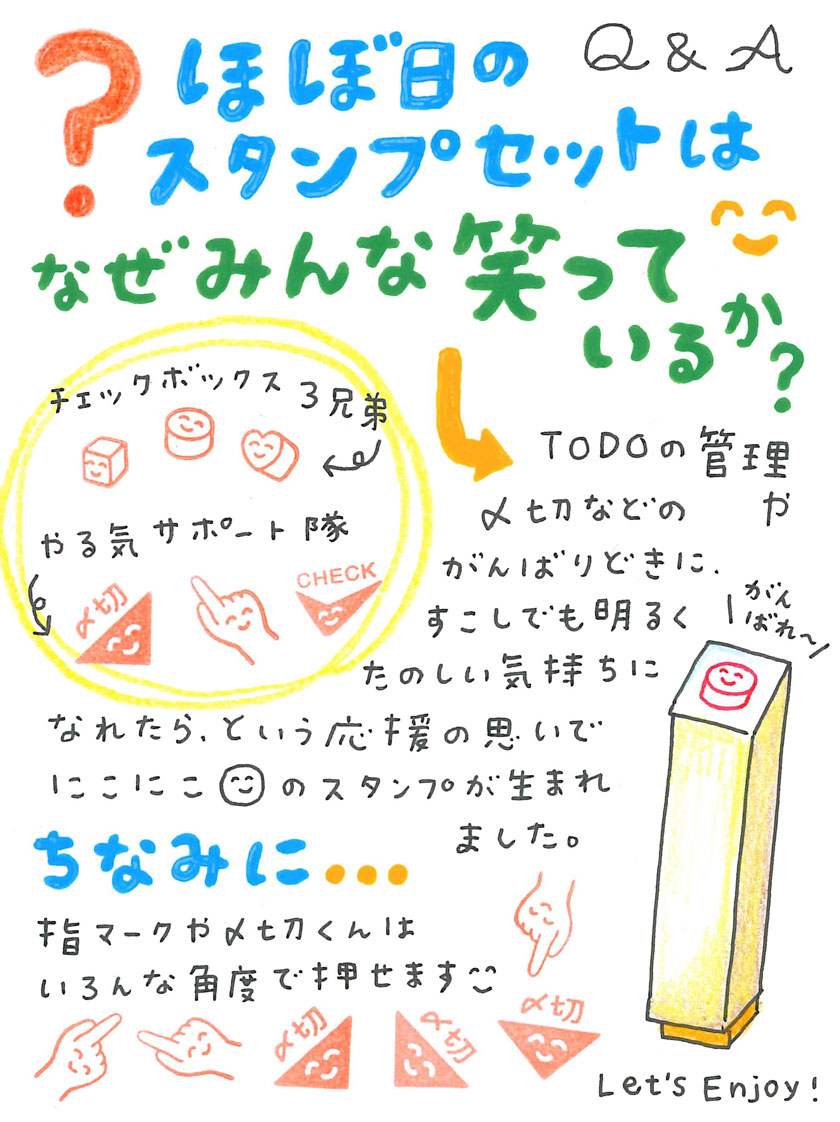 Q & A
?
ほぼ日の
スタンプセットは
なぜみんな笑って
いるか?
チェックボックス3兄弟
やる気サポート隊
〆切
CHECK
TODOの管理や
〆切などの
がんばりどきに、
すこしでも明るく
たのしい気持ちに
なれたら、という応援の思いで
にこにこ のスタンプが生まれ
ました。
がん
ばれ〜
ちなみに...
指マークや〆切くんは
いろんな角度で押せます
〆切
〆切
〆切
Let's Enjoy!